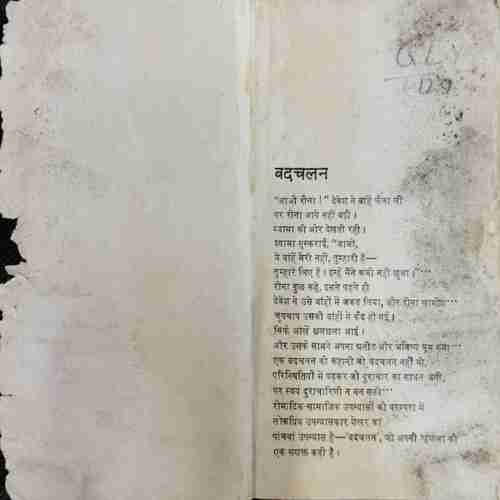 बदचलन
"आओ रीना !" देवेश ने बाहें फैला दीं
पर रीना आगे नहीं बढ़ी ।
श्यामा की ओर देखती रही ।
श्यामा मुस्कराई, "जाओ,
ये बाहें मेरी नहीं, तुम्हारी हैं—
तुम्हारे लिए हैं । इन्हें मैंने कभी नहीं छुआ ।"...
रीना कुछ कहे, इससे पहले ही
देवेश ने उसे बांहों में जकड़ लिया, और रीना खामोश...
चुपचाप उसकी बांहों में कैद हो गई ।
सिर्फ आंखें छलछला आईं ।
और उसके सामने अपना अतीत और भविष्य घूम गया...
एक बदचलन की कहानी जो बदचलन नहीं थी,
परिस्थितियों में पड़कर जो दुराचार का साधन बनी,
पर स्वयं दुराचारिणी न बन सकी...
रोमांटिक-सामाजिक उपन्यासों की परम्परा में
लोकप्रिय उपन्यासकार शेखर का
पांचवां उपन्यास है—'बदचलन', जो अपनी श्रृंखला की
एक सशक्त कड़ी है ।